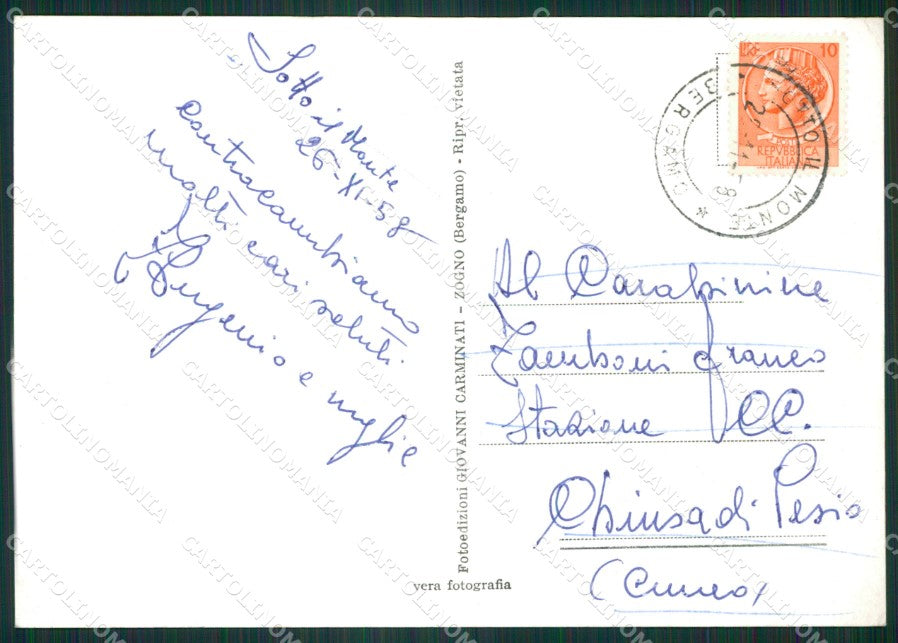 Sotto il Monte
26-XI-58
contracambiamo
molti cari saluti
Eugenio e moglie
Fotoedizioni GIOVANNI CARMINATI - ZOGNO (Bergamo) - Ripr. vietata
vera fotografia
LIRE 10
REPVBBLICA
ITALIANA
SOTTO IL MONTE
* BERGAMO *
Al Carabinine
Zamboni Franco
Stazione CC.
Chiusa di Pesio
(Cuneo)
CARTOLINOMANIA